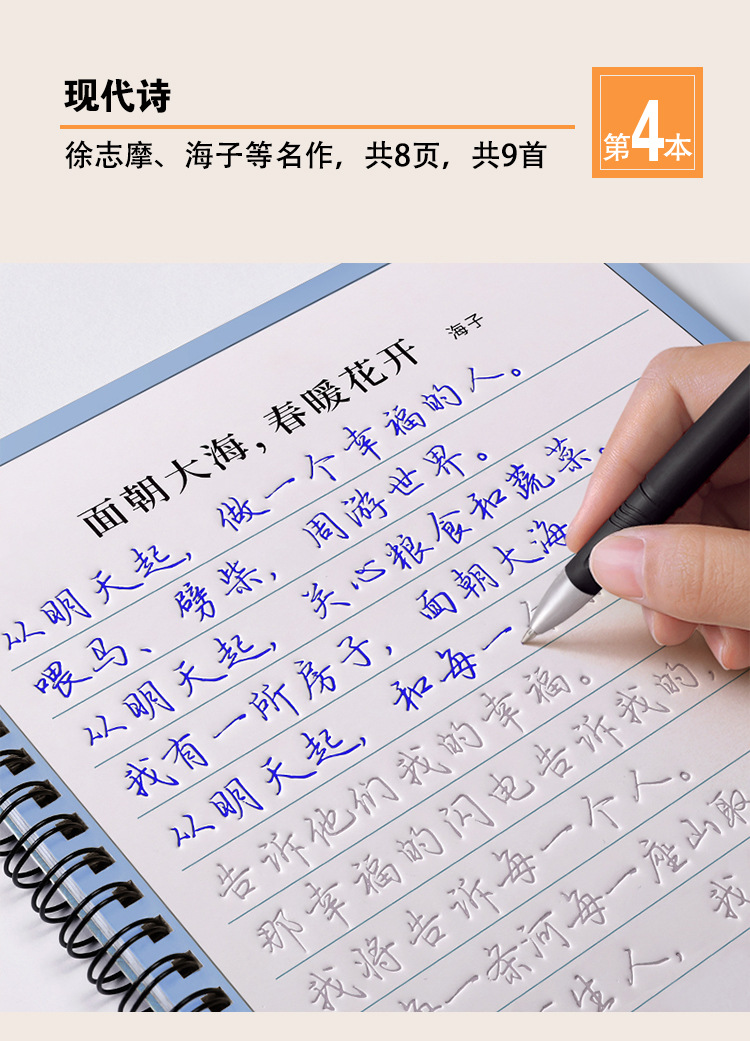 现代诗
徐志摩、海子等名作，共8页，共9首
第4本
面朝大海，春暖花开 海子
从明天起，做一个幸福的人。
喂马、劈柴，周游世界。
从明天起，关心粮食和蔬菜。
我有一所房子，面朝大海
从明天起，和每一
告诉他们我的幸福。
那幸福的闪电告诉我的，
我将告诉每一个人。
每一条河每一座山取
一生人，我